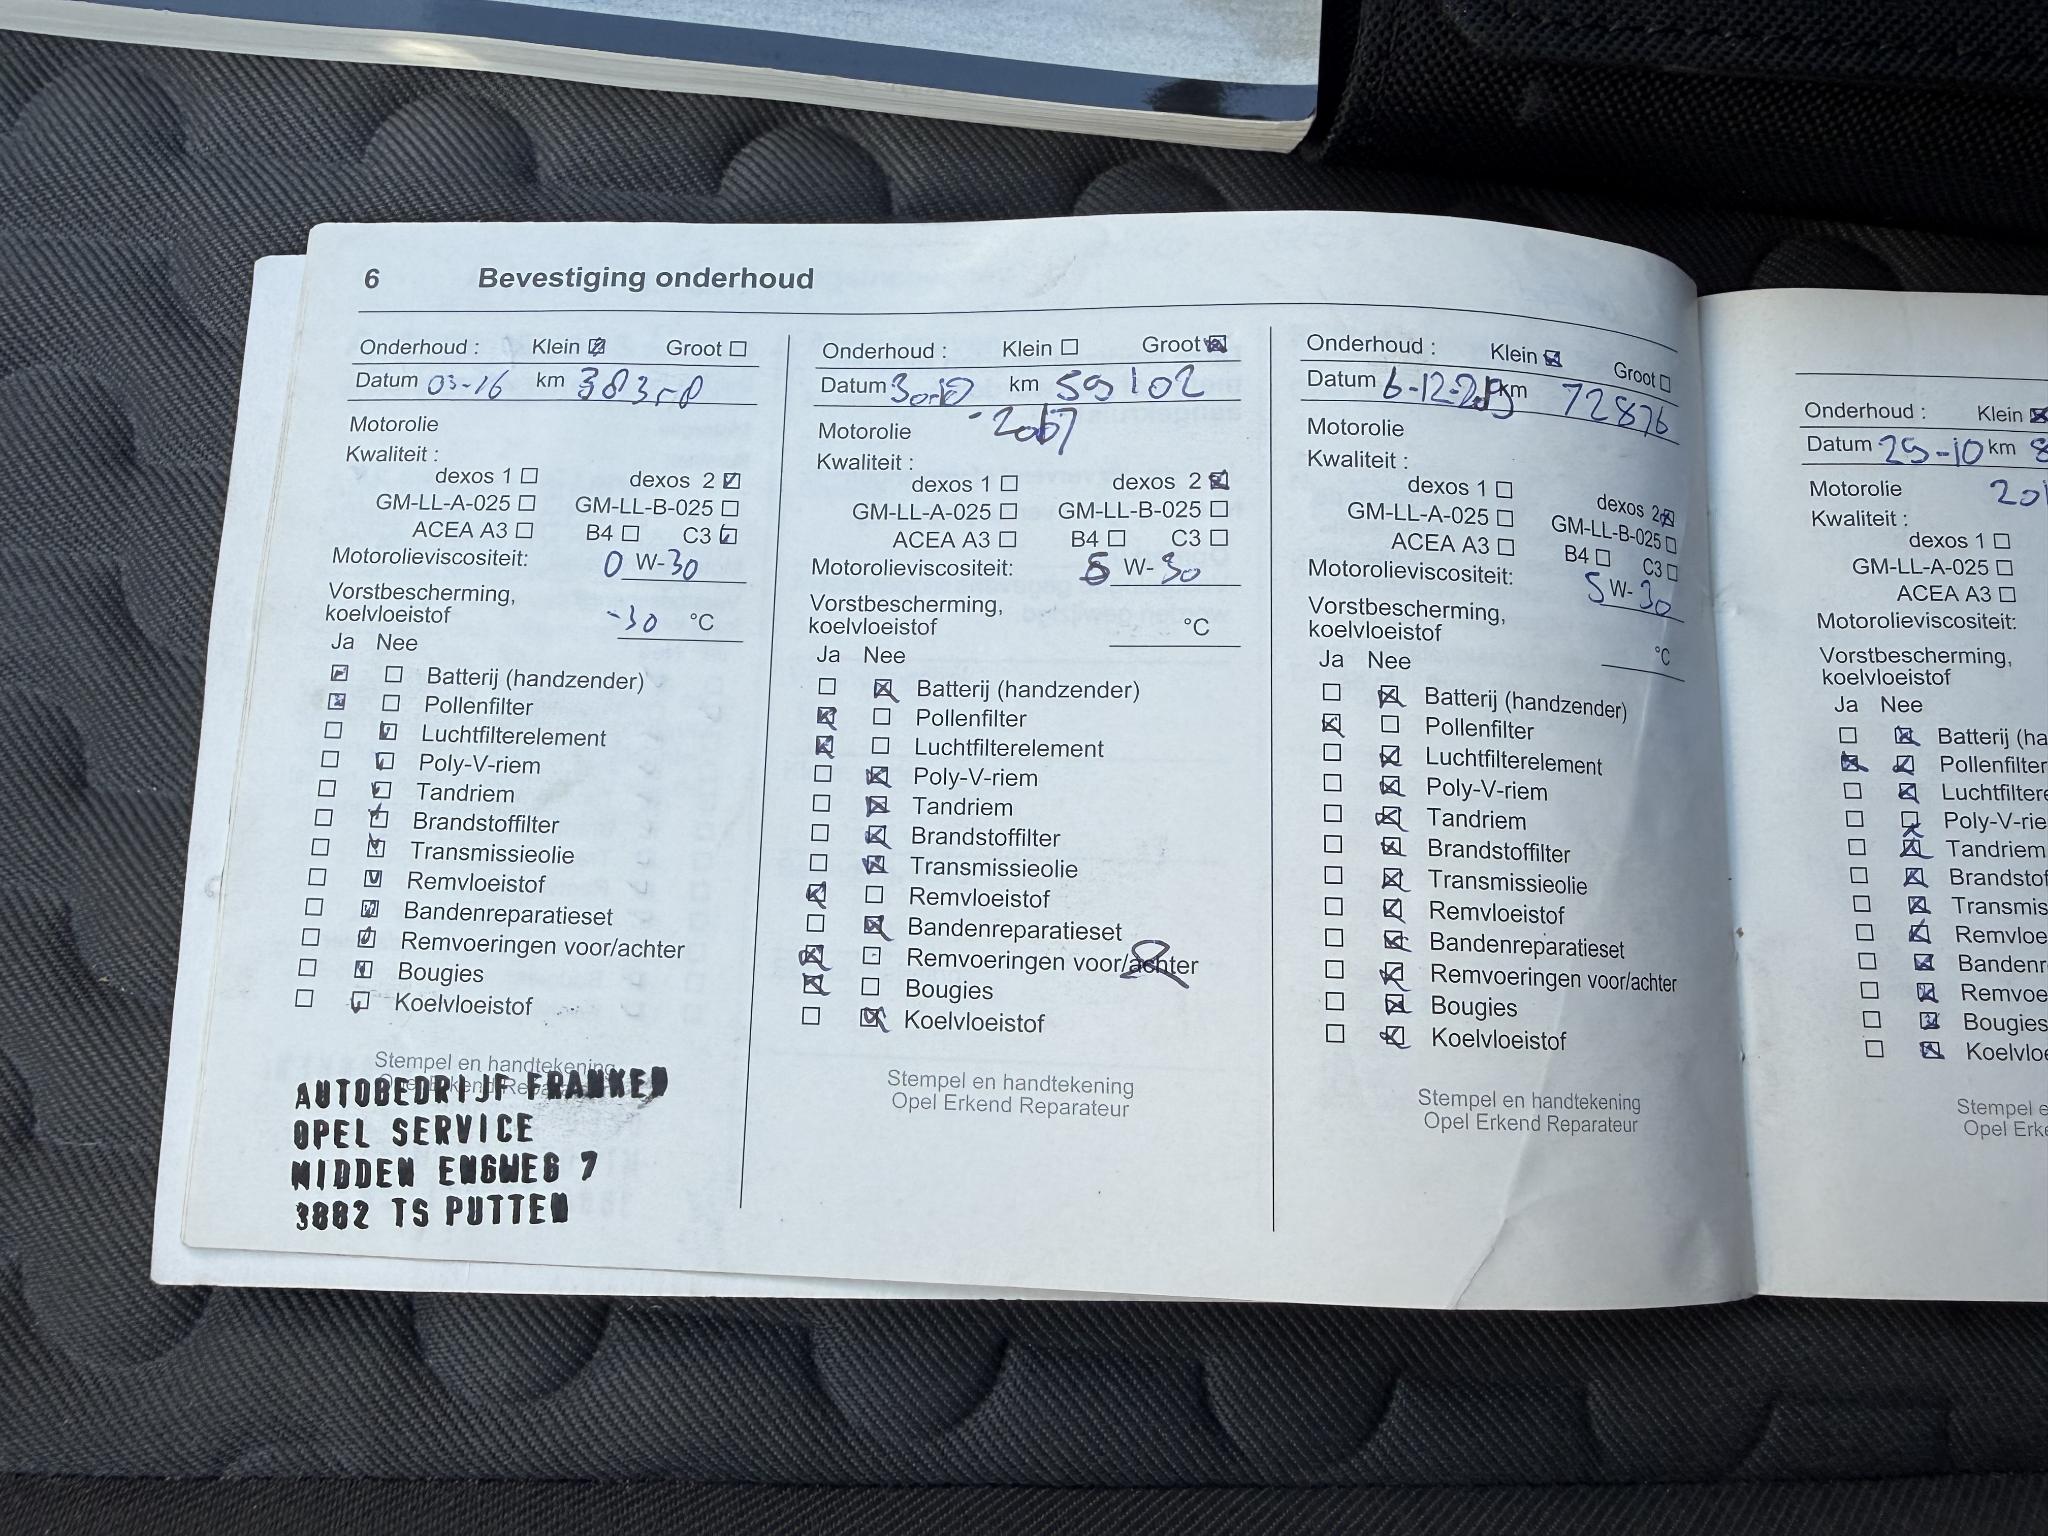 6 Bevestiging onderhoud
Onderhoud : Klein Groot
Datum 03-16 km
Motorolie
Kwaliteit :
dexos 1 dexos 2
GM-LL-A-025 GM-LL-B-025
ACEA A3 B4 C3
Motorolieviscositeit: 0 W-30
Vorstbescherming,
koelvloeistof -30 °C
Ja Nee
Batterij (handzender)
Pollenfilter
Luchtfilterelement
Poly-V-riem
Tandriem
Brandstoffilter
Transmissieolie
Remvloeistof
Bandenreparatieset
Remvoeringen voor/achter
Bougies
Koelvloeistof
Stempel en handtekening
Opel Erkend
AUTOBEDRIJF FRANKEN
OPEL SERVICE
MIDDEN ENGWEG 7
3882 TS PUTTEN
Onderhoud : Klein Groot
Datum km 59102
-2017
Motorolie
Kwaliteit :
dexos 1 dexos 2
GM-LL-A-025 GM-LL-B-025
ACEA A3 B4 C3
Motorolieviscositeit: 5 W-30
Vorstbescherming,
koelvloeistof °C
Ja Nee
Batterij (handzender)
Pollenfilter
Luchtfilterelement
Poly-V-riem
Tandriem
Brandstoffilter
Transmissieolie
Remvloeistof
Bandenreparatieset
Remvoeringen voor/achter
Bougies
Koelvloeistof
Stempel en handtekening
Opel Erkend Reparateur
Onderhoud : Klein Groot
Datum 6-12- km 72876
Motorolie
Kwaliteit :
dexos 1 dexos 2
GM-LL-A-025 GM-LL-B-025
ACEA A3 B4 C3
Motorolieviscositeit: 5 W-30
Vorstbescherming,
koelvloeistof °C
Ja Nee
Batterij (handzender)
Pollenfilter
Luchtfilterelement
Poly-V-riem
Tandriem
Brandstoffilter
Transmissieolie
Remvloeistof
Bandenreparatieset
Remvoeringen voor/achter
Bougies
Koelvloeistof
Stempel en handtekening
Opel Erkend Reparateur
Onderhoud : Klein
Datum 25-10 km 8
Motorolie 201
Kwaliteit :
dexos 1
GM-LL-A-025
ACEA A3
Motorolieviscositeit:
Vorstbescherming,
koelvloeistof
Ja Nee
Batterij (ha
Pollenfilter
Luchtfiltere
Poly-V-rie
Tandriem
Brandstof
Transmis
Remvloe
Bandenr
Remvoe
Bougies
Koelvloe
Stempel e
Opel Erke